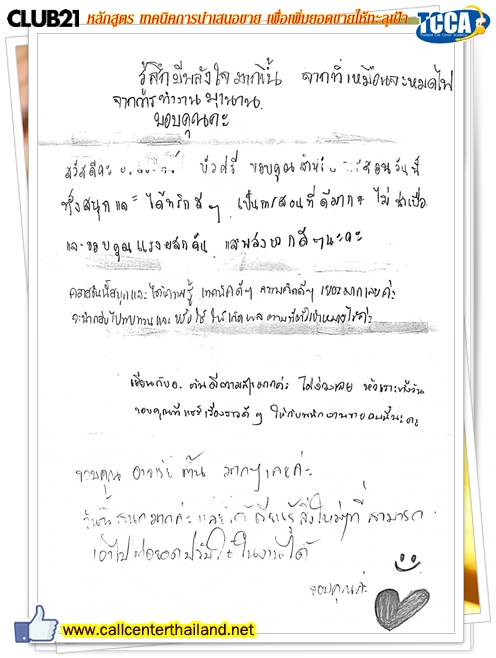 CLUB21 หลักสูตร เทคนิคการนำเสนอขาย เพื่อเพิ่มยอดขายให้ทะลุเป้า TCCA
Thailand Call Center Academy
รู้สึกมีพลังใจมากขึ้น จากที่เหมือนจะหมดไฟ
จากการทำงานมานาน
ขอบคุณคะ
สวัสดีคะ บัวศรี ขอบคุณสำหรับ สอนวันนี้
ทั้งสนุกและ ได้ทริกดีๆ เป็นการสอนที่ดีมากๆ ไม่น่าเบื่อ
และขอบคุณแรงผลักดัน และพลังบวกดีๆนะคะ
คลาสวันนี้สนุกและได้ความรู้ เทคนิคดีๆ ความคิดดีๆ เยอะมากเลยค่ะ
จะนำกลับไปทบทวนและปรับใช้ ให้เกิดผลตามที่ตั้งเป้าหมายไว้ค่ะ
เรียนกับอ. ต้นดีงามสามโลกค่ะ ไม่ง่วงเลย หัวเราะทั้งวัน
ขอบคุณที่แชร์เรื่องราวดีๆ ให้กับพนักงานขายคนนี้นะคะ
ขอบคุณ อาจารย์ ต้น มากๆเลยค่ะ
วันนี้สนุกมากค่ะ และได้เรียนรู้สิ่งใหม่ๆที่สามารถ
เอาไปต่อยอดปรับใช้ในงานได้
ขอบคุณค่ะ
www.callcenterthailand.net